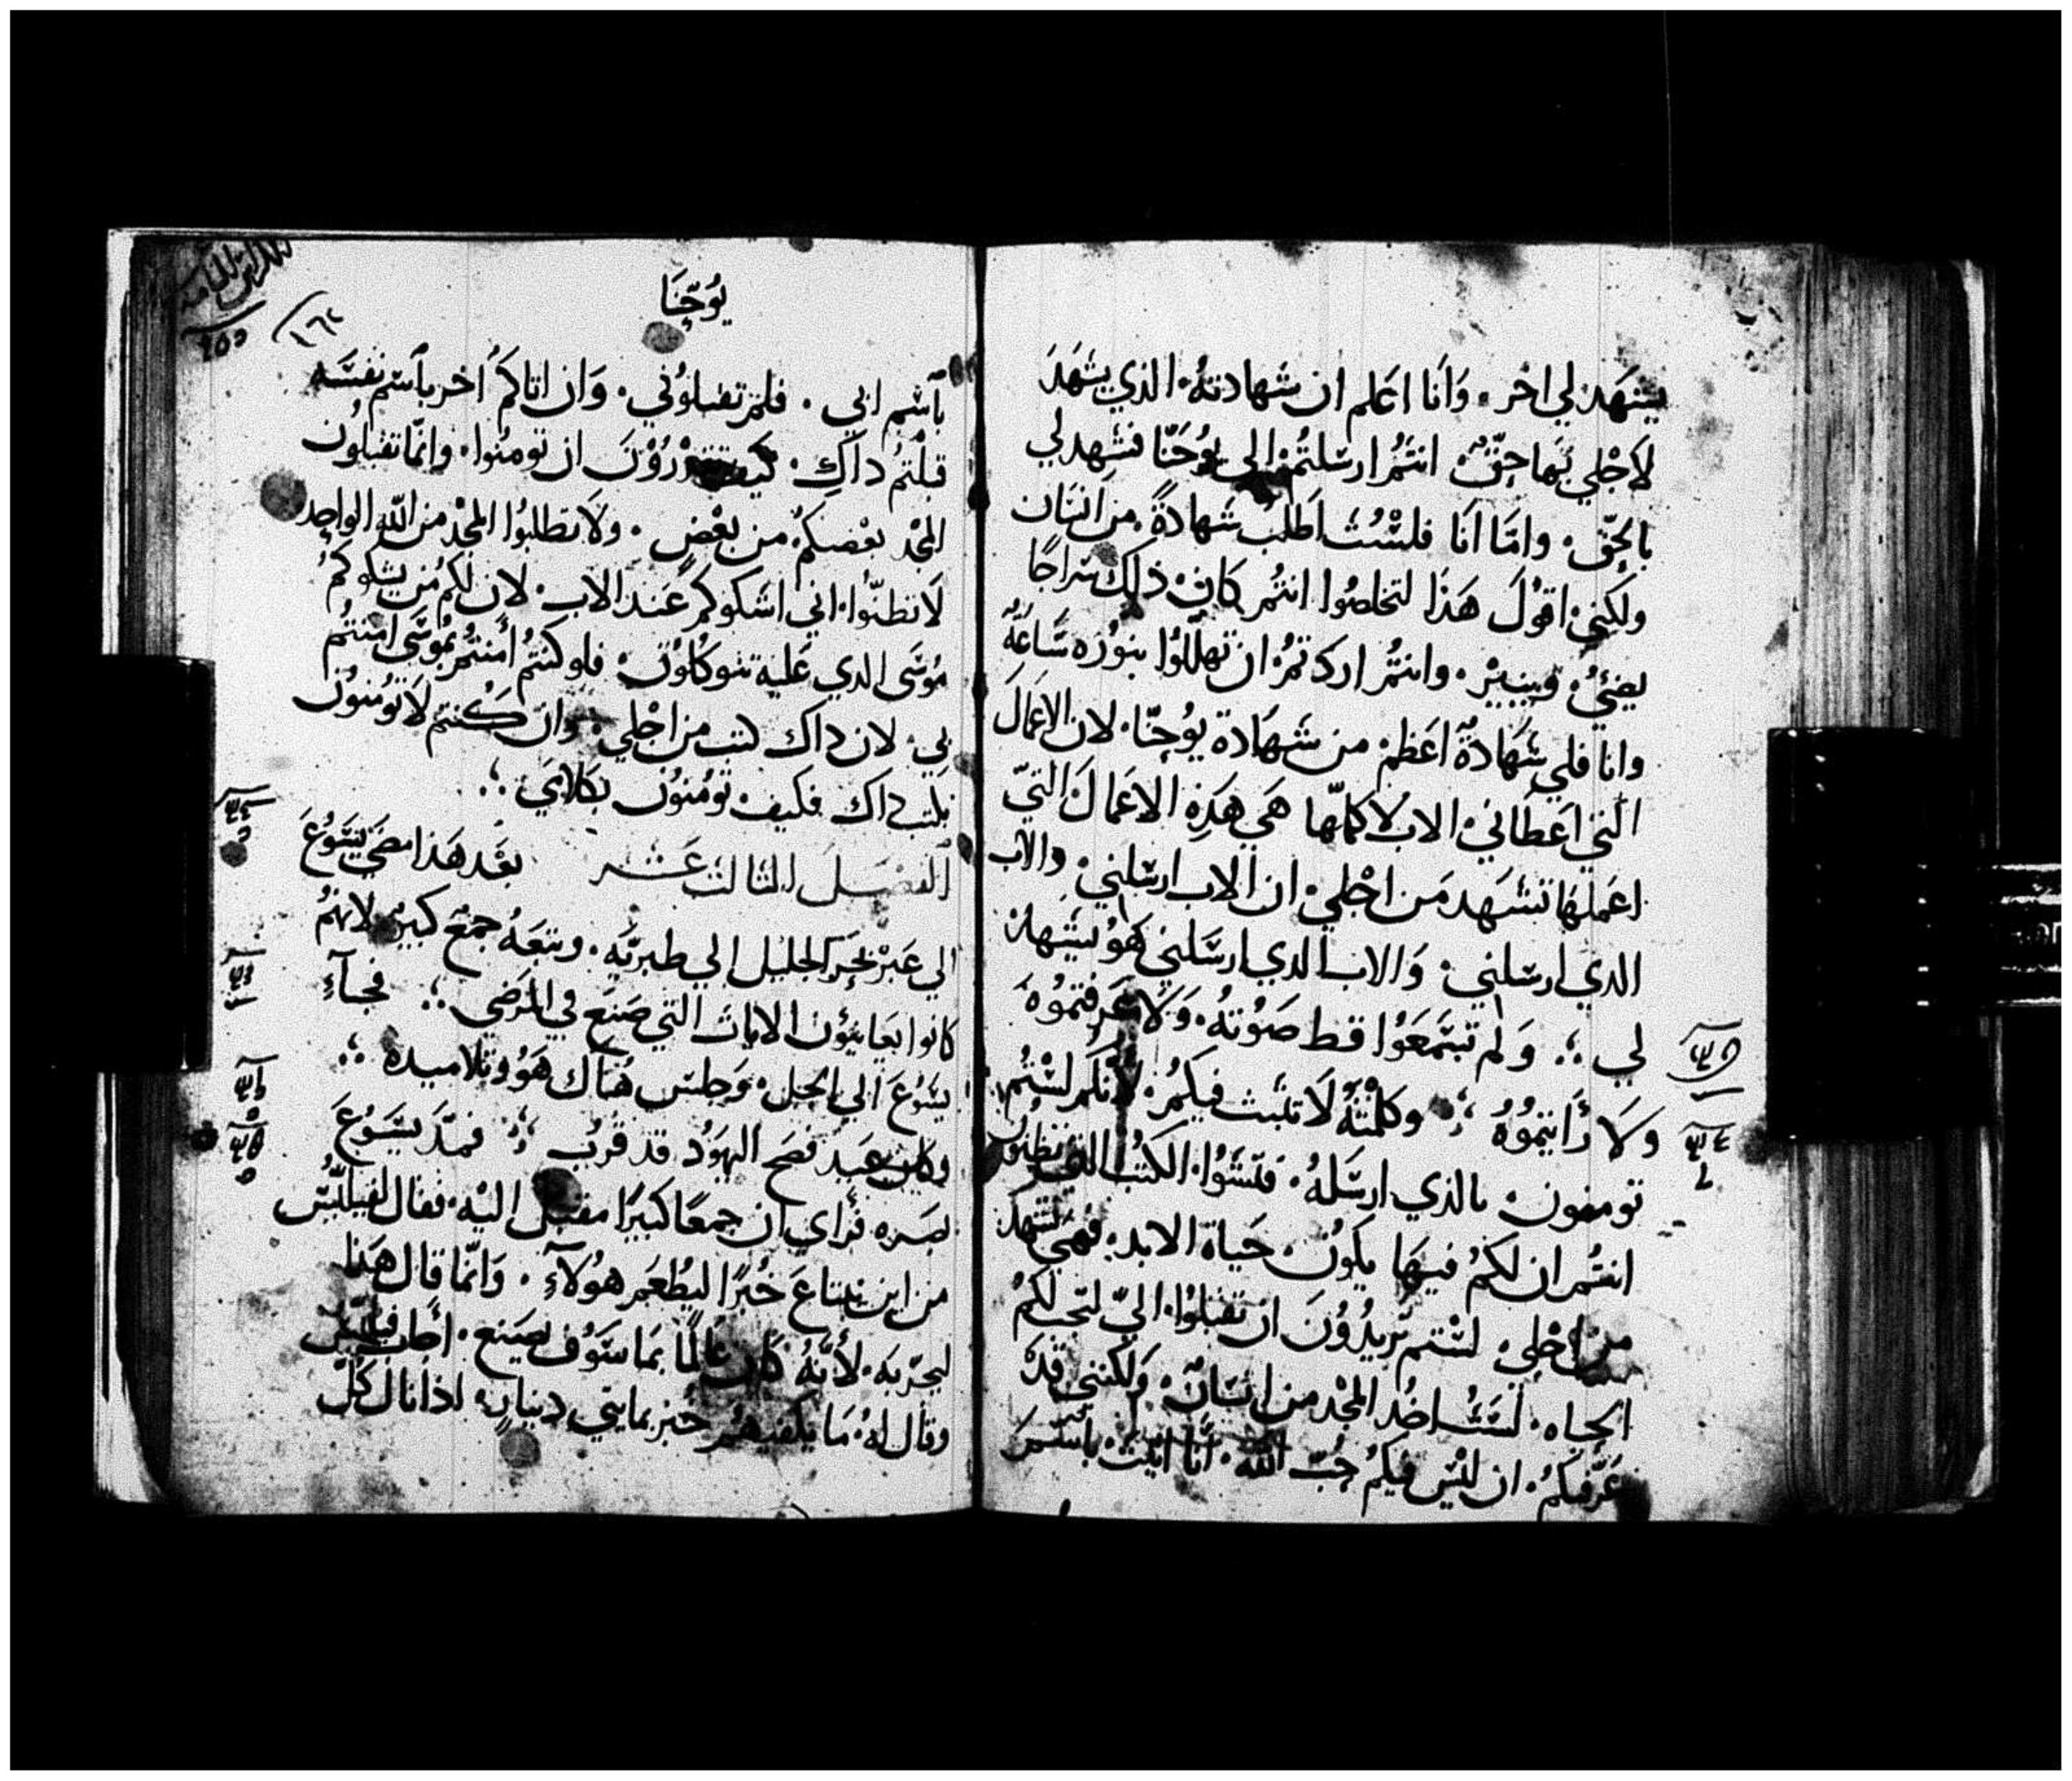 يشهَد لي اخر. وَانا اعَلم ان شهادتهُ. الذي يشهَدَ
لاجْلي بهَا حقٌ. انتمُ ارسَلتُم الى يوُحَنّا فشهِد لي
بالحقّ. وامّا انَا فلسْتُ اطَلبُ شهادةً من انسَان
ولكِني اقوُلَ هَذا لتخلصُوا انتمُ كان ذلك سَراجًا
يضيُ وينيرْ. وانتمُ اردتمُ ان تهَللّوا بنوُره سَاعَةً
وانا فلي شهَادةٌ اعَظم من شهَادة يوُحَنّا. لان الاعَمالَ
التي اعَطاني الاب لاكملّها هَي هَذِه الاعَمالَ التيّ
اعَملهَا تشهَد مَن اجْلي. ان الاب ارسَلني. والاب
الدي ارسَلني. وَالاب الدي ارسَلني هُوَ يشهدْ
لي ؞ وَلم تسَمعَوُا قط صَوُتهُ. وَلا عَرفتموُهَ
وَلا رَأيتموُهُ ؞ وكلمْتهُ لَا تثبث فيكمُ. لانكم لسْتُم
تومنون بالذي ارسَلهُ. فتشوُا الكتبُ التي تظنون
انتمُ ان لكمُ فيهَا يكوُن حَياة الابد. فهَي تشهد
من اجْلي. لسْتم تريدُوُنَ ان تقبلوُا اليّ لتحَ لكمُ
الحياه. لسَتُ اخدُ المجْد من انسَان. وَلكنني قدْ
عَرّفتكمُ. ان ليْس فيكمُ حُبّ الله. أنا اتيْت باسْم
يُوحَّنَا
١٦٤
باسْم ابي. فلم تقبلوُني. وَان اتاكمُ اخر باسْم نفسَه
قبلتمُ داكَ. كيف تقدرُوْنَ ان توُمنُوا. وانمّا تقبلوُن
المجْد بعْضكمُ من بعْض. ولَا تطلبوُا المجْد من الله الواحِد
لَا تظنّوُا اني اشكوكمُ عَند الاب. لان لكمُ من يشكوكمُ
موُسَى الدي عَليه تتوكلوُن. فلو كنتمُ أمنتمُ بموُسَى امنتمُ
بي. لان داك كتب من اجْلي. وَان كنتم لَا توُمنوُن
بكتب داك فكيف توُمنوُن بكلامَي ؞
الفصَل الثالث عَشر بعَد هَذا مضَي يسَوُعَ
الي عَبرْ بحَر الجليل الي طبريَه. وتبعَهُ جمَع كبير لانهمُ
كانوا يعَاينوُن الايات التي صَنعَ في المرَضي ؞ فجآءِ
يسَوُعَ الي الجبل. وَجلسَ هُناك هَوُ وتلاميده ؞
وكان عيَد فصَح اليهَوُد قد قرُب ؞ فمدَّ يسَوُعَ
بصَره فرَأي ان جمعًا كبيرًا مقبل اليْه. فقال لفيلبّس
من اين نبتاعَ خُبزًا ليطُعَم هوُلآءِ. وَانمّا قال هَذا
ليجرّبه. لأنَّهُ كان عَالمًا بمَا سَوُف يصَنع. أجاب فيلبّس
وقال لهُ. مَا يكفيهمُ خبز بمايتي دينار. اذا نال كلّ